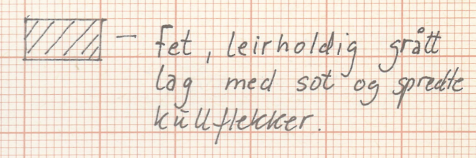 – Fet, leirholdig grått
lag med sot og spredte
kullflekker.